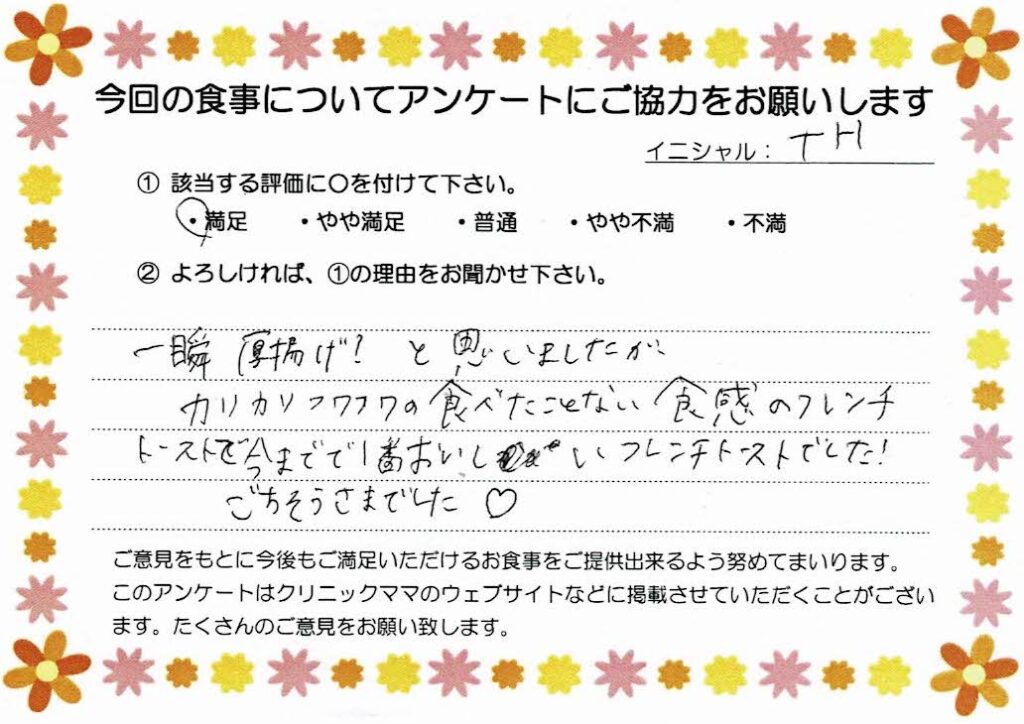 今回の食事についてアンケートにご協力をお願いします
イニシャル： TH
① 該当する評価に○を付けて下さい。
・満足 ・やや満足 ・普通 ・やや不満 ・不満
② よろしければ、①の理由をお聞かせ下さい。
一瞬 厚揚げ？ と思いましたが、
カリカリフワフワの食べたことない食感のフレンチ
トーストで今までで1番おいしいフレンチトーストでした！
ごちそうさまでした♡
ご意見をもとに今後もご満足いただけるお食事をご提供出来るよう努めてまいります。
このアンケートはクリニックママのウェブサイトなどに掲載させていただくことがござい
ます。たくさんのご意見をお願い致します。